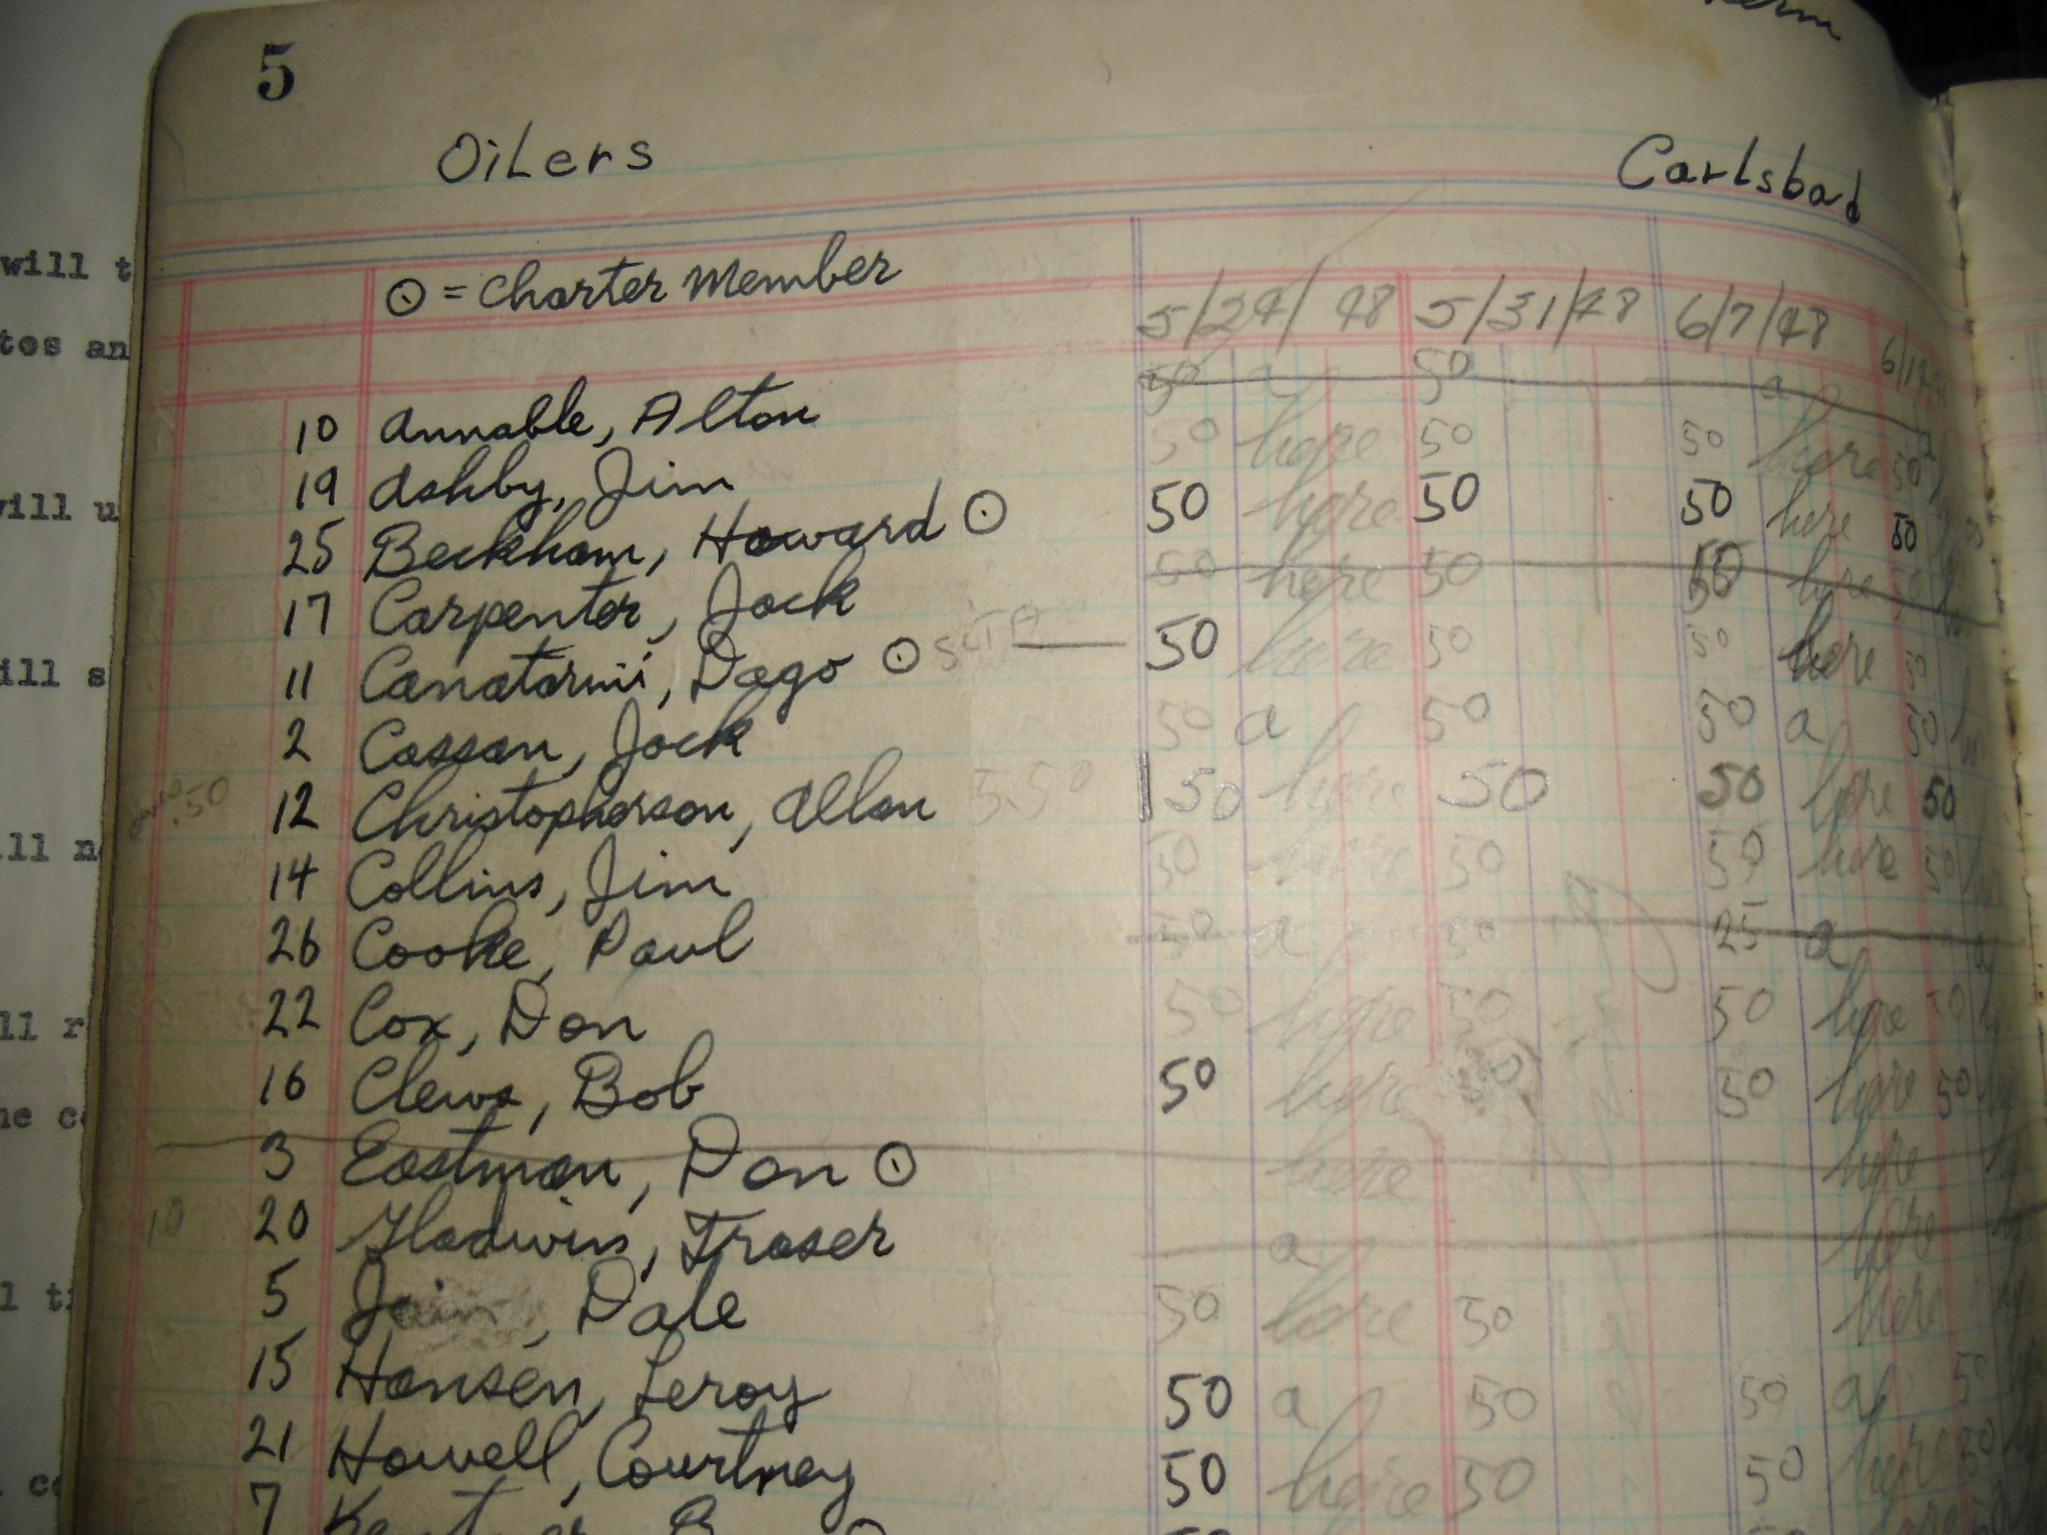 5
Oilers Carlsbad
⊙ = Charter Member
5/24/48 5/31/48 6/7/48
50 a 50 a
10 Annable, Alton 50 here 50 50 here 50
19 Ashby, Jim 50 here 50 50 here 50
25 Beckham, Howard ⊙ 50 here 50 50 here
17 Carpenter, Jack 50 here 50 50 here 50
11 Canatarini, Dago ⊙ 50 a 50 50 a 50
2 Casson, Jack 50 here 50 50 here 50
.50 12 Christopherson, Allan 5.50 50 here 50 50 here 50
14 Collins, Jim 50 a 50 25 a a
26 Cooke, Paul 50 here 50 50 here 50
22 Cox, Don 50 here 50 here 50
16 Clews, Bob here here
3 Eastman, Don ⊙ a here
10 20 Gladwin, Fraser 50 here 50 here
5 Dale 50 a 50 50 a 50
15 Hansen, Leroy 50 here 50 50 here 50
21 Howell, Courtney
7
will t
tes an
will u
ill s
ill n
ll r
he c
l t
c